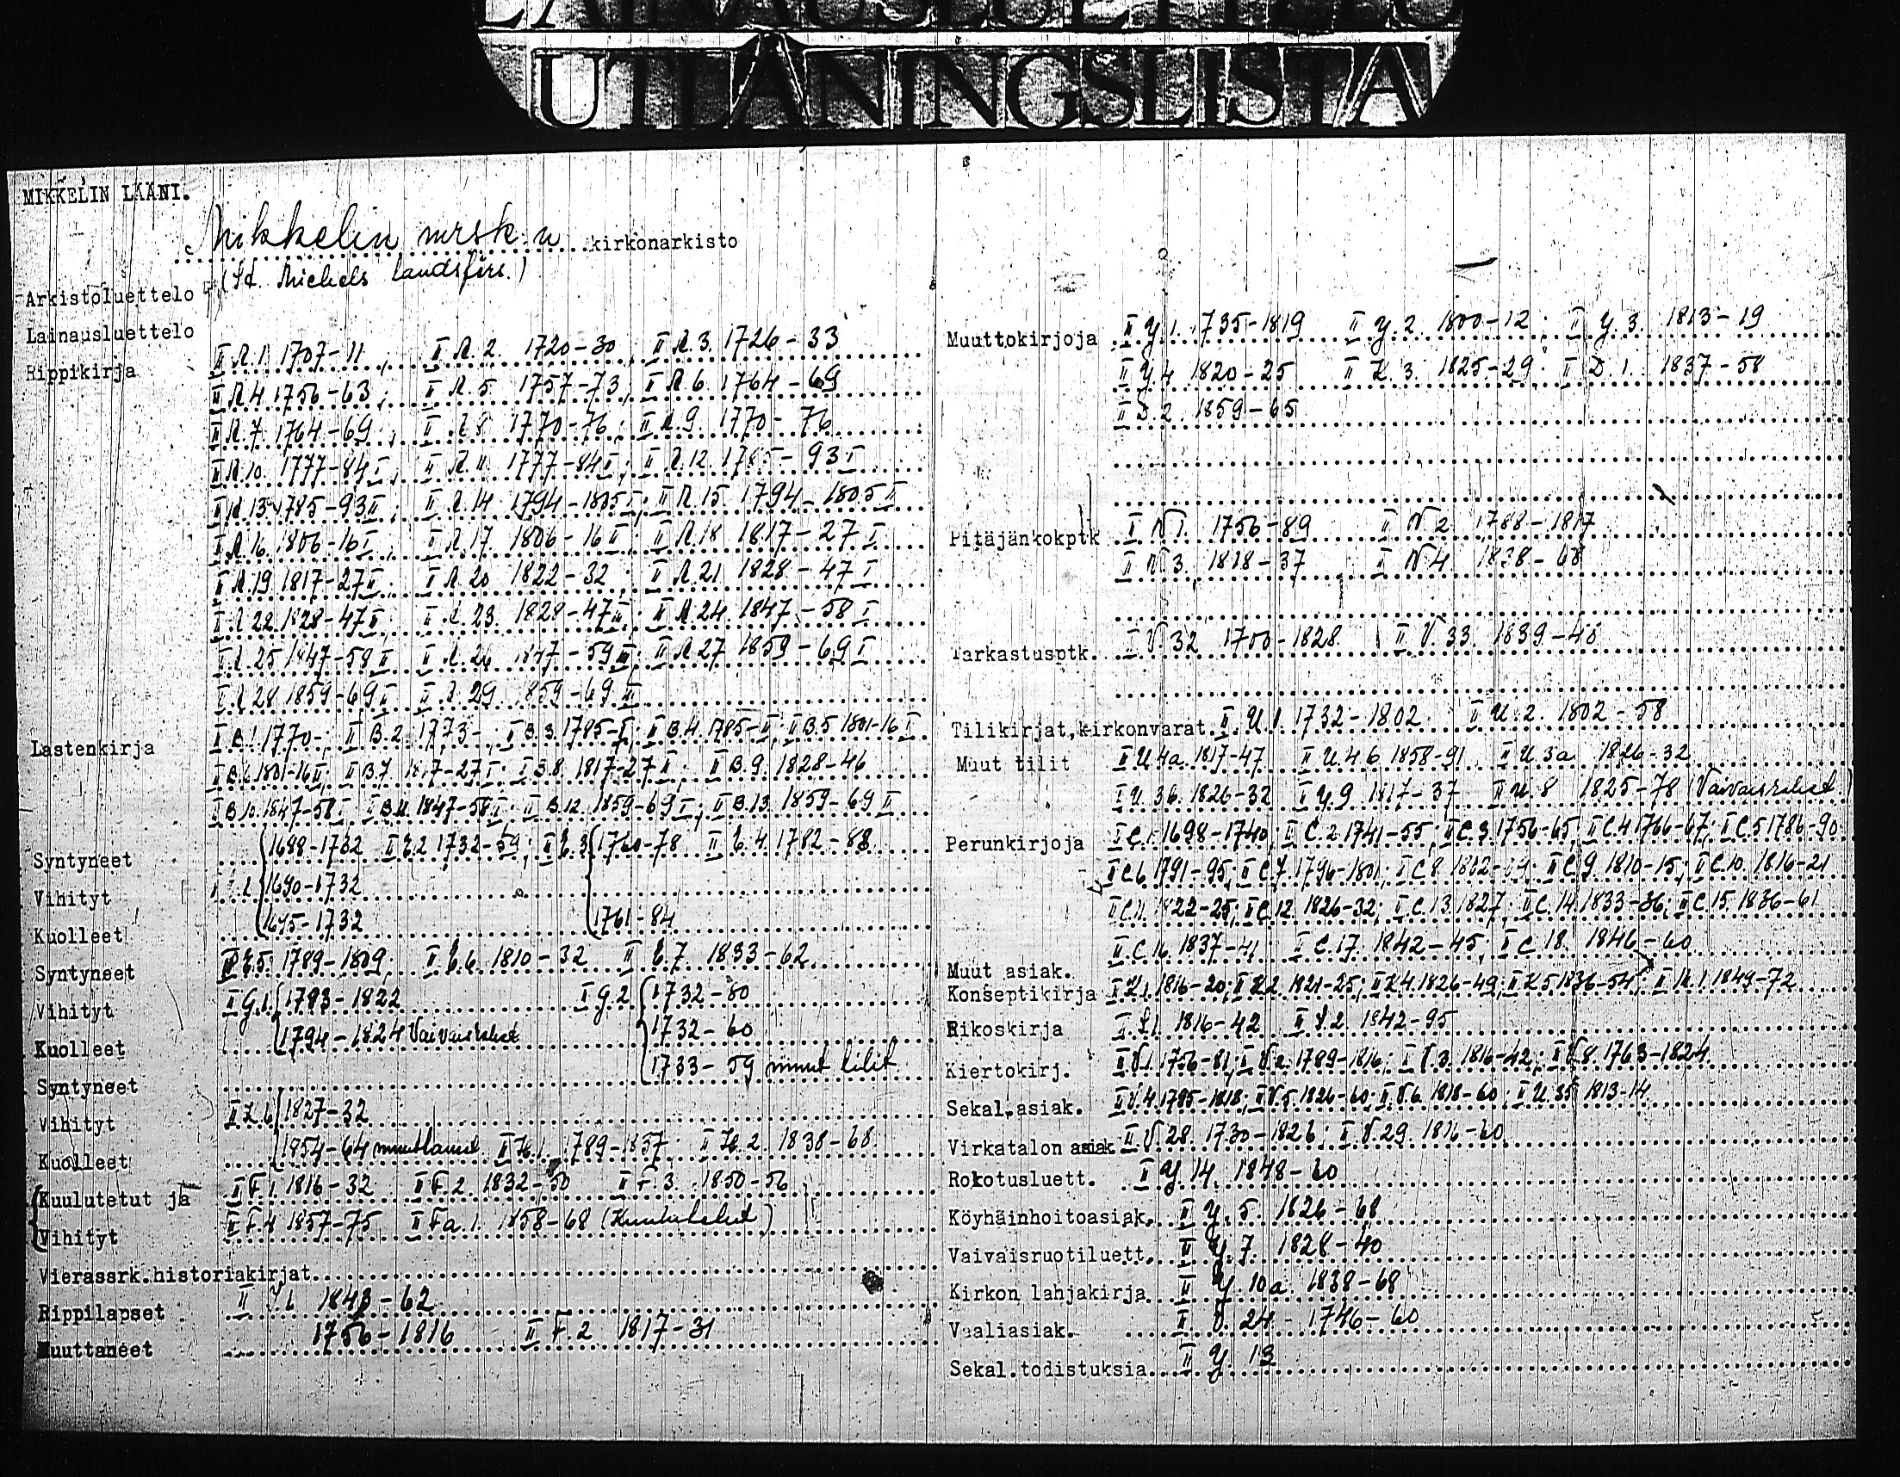 LAINAUSLUETTELO
UTLÅNINGSLISTA
MIKKELIN LÄÄNI.
Mikkelin mrsk:n kirkonarkisto
(St. Michels landsförs.)
Arkistoluettelo
Lainausluettelo
Rippikirja II R.1. 1707-11, II R.2. 1720-30, II R.3. 1726-33
II R.4. 1756-63, II R.5. 1757-73, II R.6. 1764-69
II R.7. 1764-69, II R.8. 1770-76, II R.9. 1770-76
II R.10. 1777-84 I, II R.11. 1777-84 I, II R.12. 1785-93 I
II R.13. 1785-93 II, II R.14. 1794-1805 I, II R.15. 1794-1805 II
II R.16. 1806-16 I, II R.17. 1806-16 II, II R.18. 1817-27 I
II R.19. 1817-27 II, II R.20. 1822-32, II R.21. 1828-47 I
II R.22. 1828-47 II, II R.23. 1828-47 III, II R.24. 1847-58 I
II R.25. 1847-58 II, II R.26. 1847-59 III, II R.27. 1859-69 I
II R.28. 1859-69 II, II R.29. 1859-69 III
Lastenkirja II B.1. 1770-, II B.2. 1773-, II B.3. 1785- I, II B.4. 1785- II, II B.5. 1801-16 I
II B.6. 1801-16 II, II B.7. 1817-27 I, II B.8. 1817-27 II, II B.9. 1828-46
II B.10. 1847-58 I, II B.11. 1847-58 II, II B.12. 1859-69 I, II B.13. 1859-69 II
Syntyneet 1688-1732 II E.2. 1732-59, II E.3. 1760-78 II E.4. 1782-88
Vihityt 1690-1732
Kuolleet 1695-1732 1761-84
Syntyneet II E.5. 1789-1809 II E.6. 1810-32 II E.7. 1833-62
Vihityt II G.1. 1793-1822 II G.2. 1732-80
Kuolleet 1794-1824 Vaivaisrahat 1732-60
1733-59 muut tilit
Syntyneet
Vihityt 1827-32
Kuolleet 1954-64 II H.1. 1789-1837 II H.2. 1838-68
Kuulutetut ja II F.1. 1816-32 II F.2. 1832-50 II F.3. 1850-56
Vihityt II F.4. 1857-75 II Fa.1. 1858-68 (Kuulutetut)
Vierassrk.historiakirjat
Rippilapset 1843-62
Muuttaneet 1756-1816 II F.2 1817-31
Muuttokirjoja II Y.1. 1735-1819 II Y.2. 1800-12, II Y.3. 1813-19
II Y.4. 1820-25 II K.3. 1825-29, II D.1. 1837-58
II D.2. 1859-65
Pitäjänkokptk II N 1. 1756-89 II N 2. 1788-1817
II N 3. 1818-37 II N 4. 1838-68
Tarkastusptk. II V.32 1700-1828 II V.33. 1839-48
Tilikirjat,kirkonvarat II U.1. 1732-1802 II U.2. 1802-58
Muut tilit II U.4a. 1817-47 II U.4b 1858-91 II U.3a 1826-32
II U.3b. 1826-32 II Y.9 1817-37 II U.8 1825-78 (Vaivaisrahat)
Perunkirjoja II C.1. 1698-1740, II C.2. 1741-55, II C.3. 1756-65, II C.4 1766-67, II C.5 1786-90
II C.6. 1791-95, II C.7. 1796-1801, II C.8. 1802-09, II C.9. 1810-15, II C.10. 1816-21
II C.11. 1822-25, II C.12. 1826-32, II C.13. 1827, II C.14. 1833-36, II C.15. 1836-61
II C.16. 1837-41 II C.17. 1842-45, II C.18. 1846-60
Muut asiak.
Konseptikirja II K.1. 1816-20, II K.2. 1821-25, II K.4. 1826-49, II K.5. 1836-54, II K.1. 1849-72
Rikoskirja 1816-42 1842-95
Kiertokirj. II V.1. 1756-81, II V.2. 1789-1816, II V.3. 1816-42, II V.8. 1763-1824
Sekal.asiak. II V.4. 1785-1818, II V.5. 1826-60, II V.6. 1818-60, II U.35 1813-14
Virkatalon asiak II V.28. 1730-1826, II V.29. 1816-60
Rokotusluett. II Y.14. 1848-60
Köyhäinhoitoasiak. II Y.5. 1826-68
Vaivaisruotiluett. II Y.7. 1828-40
Kirkon lahjakirja II Y.10a 1838-68
Vaaliasiak. II V.24 1746-60
Sekal.todistuksia II Y.13